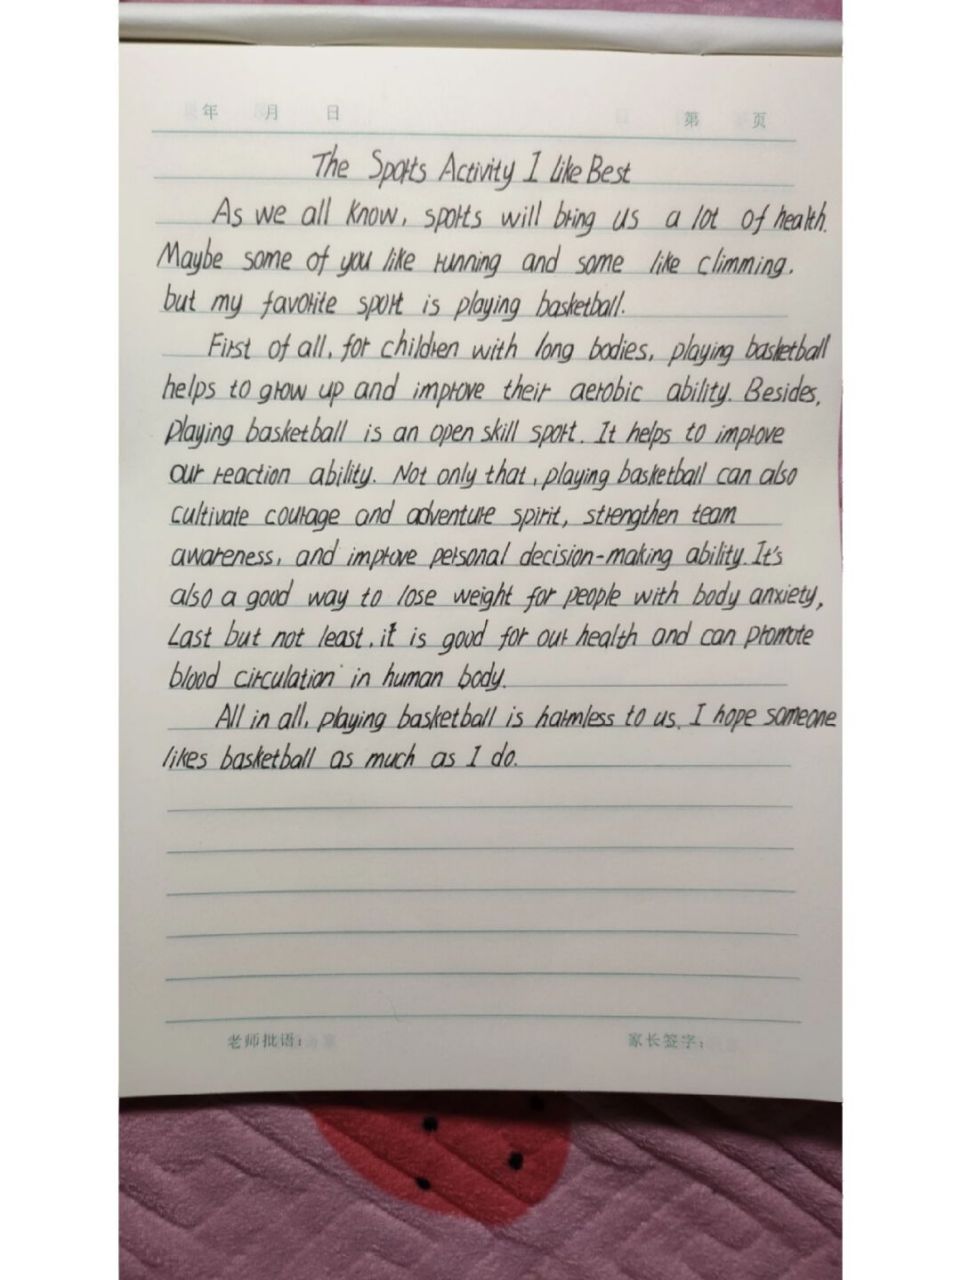 年 月 日 第 页
The Sports Activity I like Best
As we all know, sports will bring us a lot of health.
Maybe some of you like running and some like climming,
but my favorite sport is playing basketball.
First of all, for children with long bodies, playing basketball
helps to grow up and improve their aerobic ability. Besides,
playing basketball is an open skill sport. It helps to improve
our reaction ability. Not only that, playing basketball can also
cultivate courage and adventure spirit, strengthen team
awareness, and improve personal decision-making ability. It's
also a good way to lose weight for people with body anxiety,
Last but not least, it is good for our health and can promote
blood circulation in human body.
All in all, playing basketball is harmless to us. I hope someone
likes basketball as much as I do.
老师批语: 家长签字: